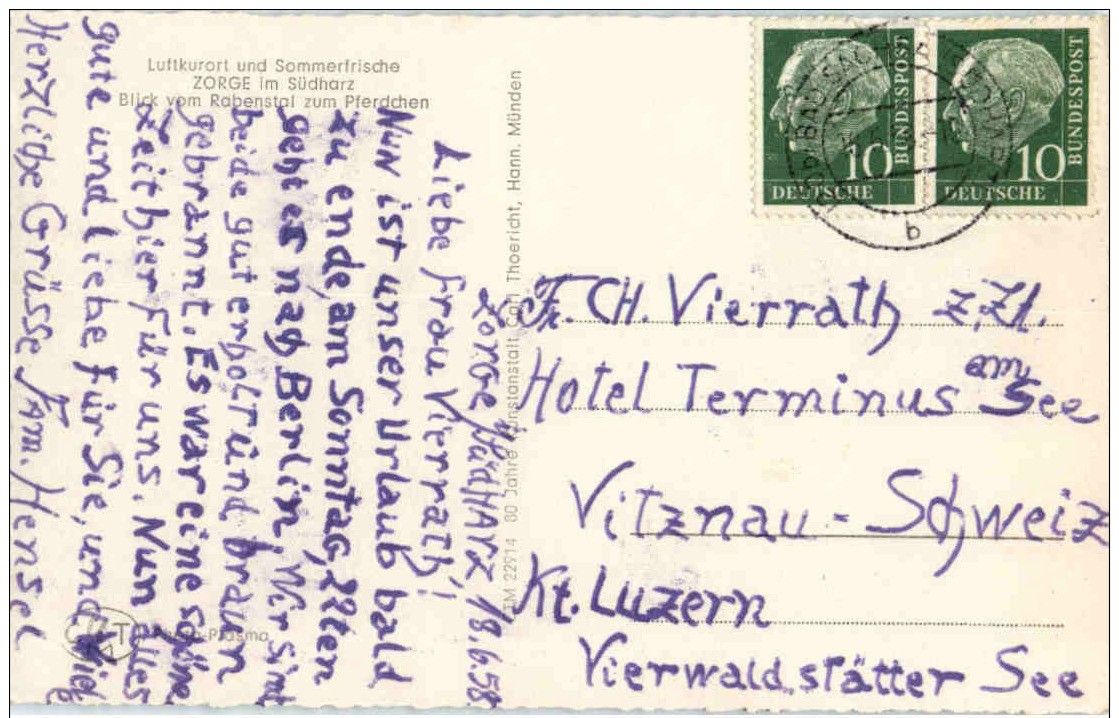 Luftkurort und Sommerfrische
ZORGE im Südharz
Blick vom Rabenstal zum Pferdchen
Zorge Südharz 18.6.58.
Liebe Frau Vierrath!
Nun ist unser Urlaub bald
zu ende, am Sonntag, 22ten
geht es nach Berlin. Wir sind
beide gut erholt und braun
gebrannt. Es war eine schöne
Zeit hier für uns. Nun alles
gute und liebe für Sie, und viele
Herzliche Grüsse Fam. Hensel
22914 80 Jahre Kunstanstalt Carl Thoericht, Hann. Münden
BUNDESPOST
10
DEUTSCHE
BUNDESPOST
10
DEUTSCHE
b
Fr. CH. Vierrath z. Zt.
Hotel Terminus am See
Vitznau - Schweiz
Kt. Luzern
Vierwaldstätter See